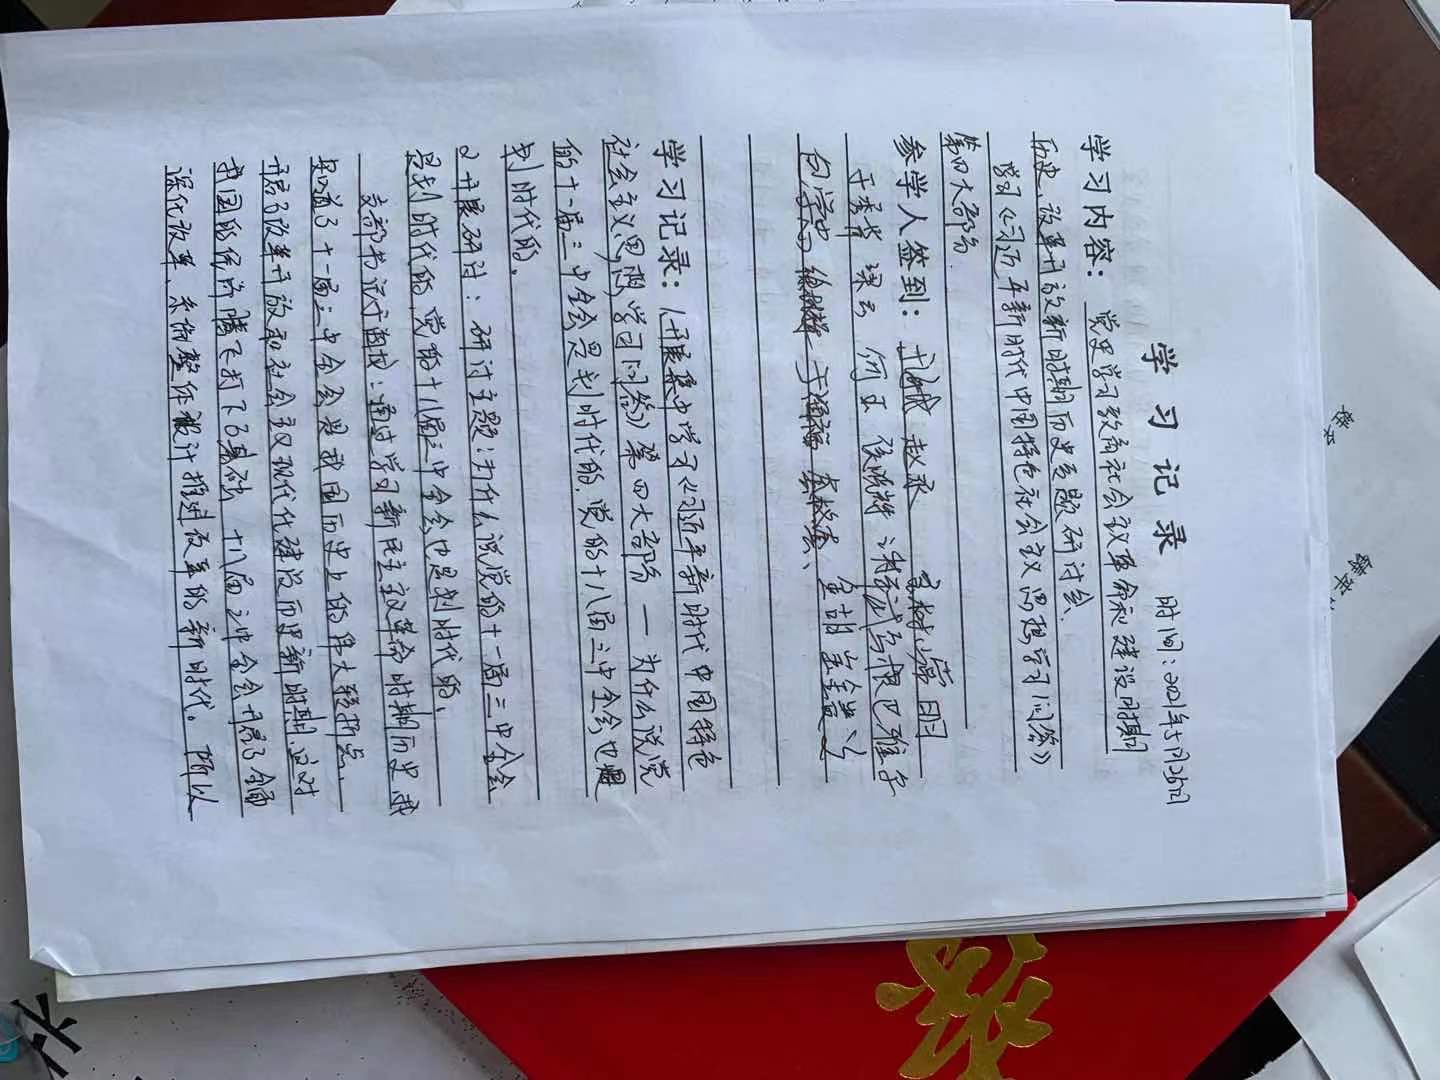 学习记录
时间：2021年5月26日
学习内容：党史学习教育社会主义革命和建设时期
历史、改革开放新时期历史专题研讨会.
学习《习近平新时代中国特色社会主义思想学习问答》
第四大部分.
参学人签到：
赵永
梁云 何玉
学习记录：1.开展集中学习《习近平新时代中国特色
社会主义思想学习问答》第四大部分——为什么说党
的十一届三中全会是划时代的,党的十八届三中全会也是
划时代的.
2.开展研讨：研讨主题:为什么说党的十一届三中全会
是划时代的,党的十八届三中全会也是划时代的.
支部书记 通过学习新民主主义革命时期历史,我
知道了十一届三中全会是我国历史上的伟大转折点.
开启了改革开放和社会主义现代化建设历史新时期,这对
我国的经济腾飞打下了基础. 十八届三中全会开启了全面
深化改革、系统整体设计推进改革的新时代。所以